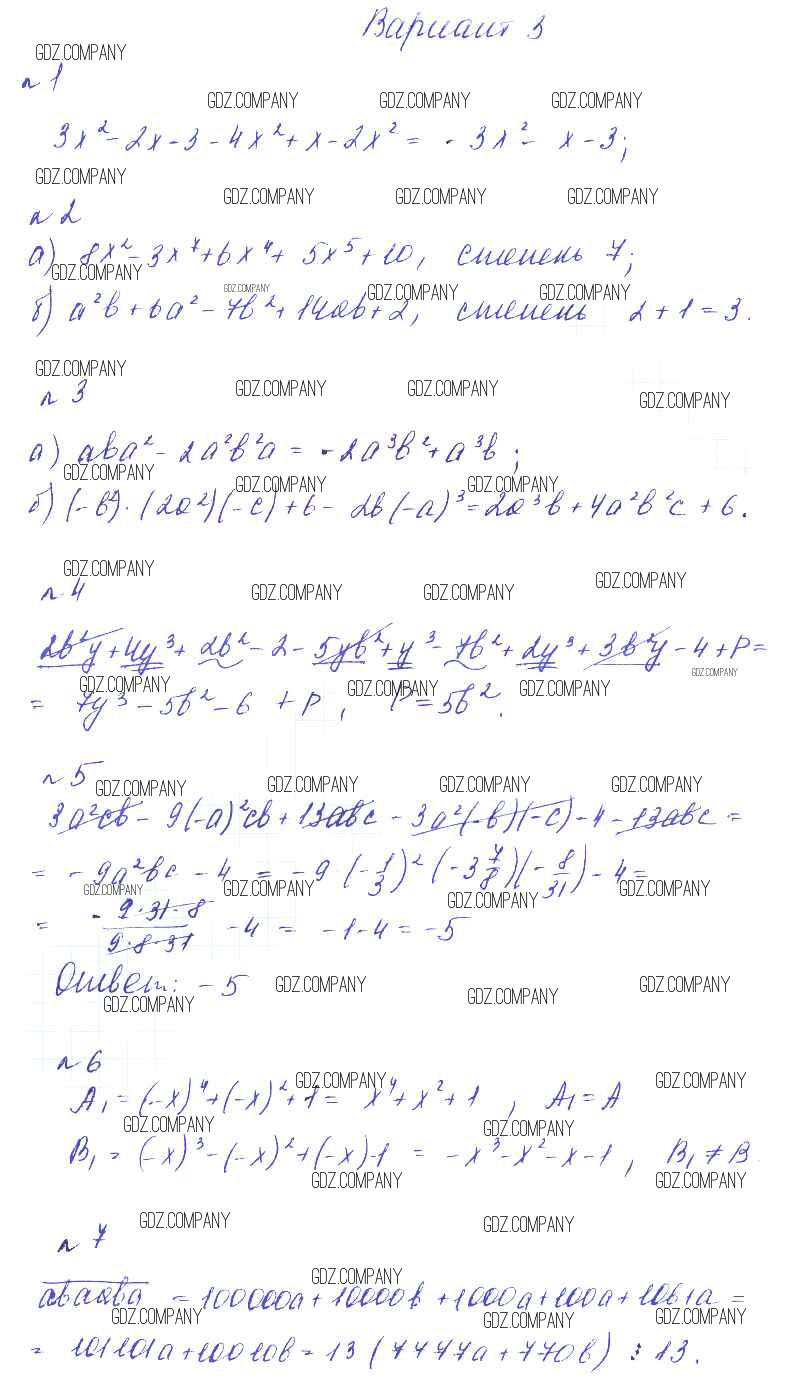 Вариант 3
GDZ.COMPANY
n 1
GDZ.COMPANY GDZ.COMPANY GDZ.COMPANY
3x² - 2x - 3 - 4x² + x - 2x² = - 3x² - x - 3;
GDZ.COMPANY
GDZ.COMPANY GDZ.COMPANY GDZ.COMPANY
n 2
а) 8x² - 3x⁷ + 6x⁴ + 5x⁵ + 10, степень 7;
GDZ.COMPANY
GDZ.COMPANY GDZ.COMPANY GDZ.COMPANY
б) a²b + 6a² - 7b² + 14ab + 2, степень 2 + 1 = 3.
GDZ.COMPANY
GDZ.COMPANY GDZ.COMPANY GDZ.COMPANY
n 3
а) aba² - 2a²b²a = - 2a³b² + a³b;
GDZ.COMPANY
GDZ.COMPANY GDZ.COMPANY
б) (-b²) · (2a²)(-c) + 6 - 2b(-a)³ = 2a³b + 4a²b²c + 6.
GDZ.COMPANY
n 4
GDZ.COMPANY GDZ.COMPANY GDZ.COMPANY
2b²y + 4y³ + 2b² - 2 - 5yb² + y³ - 7b² + 2y³ + 3b²y - 4 + P =
GDZ.COMPANY
GDZ.COMPANY GDZ.COMPANY GDZ.COMPANY
= 7y³ - 5b² - 6 + P, P = 5b².
n 5
GDZ.COMPANY GDZ.COMPANY GDZ.COMPANY GDZ.COMPANY
3a²cb - 9(-a)²cb + 13abc - 3a²(-b)(-c) - 4 - 13abc =
= - 9a²bc - 4 = - 9 (-1/3)² (-3 7/8)(-8/31) - 4 =
GDZ.COMPANY GDZ.COMPANY GDZ.COMPANY GDZ.COMPANY
= - 9·31·8/9·8·31 - 4 = - 1 - 4 = - 5
Ответ: - 5
GDZ.COMPANY GDZ.COMPANY GDZ.COMPANY GDZ.COMPANY
n 6
GDZ.COMPANY GDZ.COMPANY
A₁ = (-x)⁴ + (-x)² + 1 = x⁴ + x² + 1, A₁ = A
GDZ.COMPANY GDZ.COMPANY
B₁ = (-x)³ - (-x)² + (-x) - 1 = - x³ - x² - x - 1, B₁ ≠ B
GDZ.COMPANY GDZ.COMPANY
GDZ.COMPANY GDZ.COMPANY
n 7
GDZ.COMPANY
abaaba = 100000a + 10000b + 1000a + 100a + 10b + a =
GDZ.COMPANY GDZ.COMPANY GDZ.COMPANY
= 101101a + 10010b = 13 (7777a + 770b) ⋮ 13.